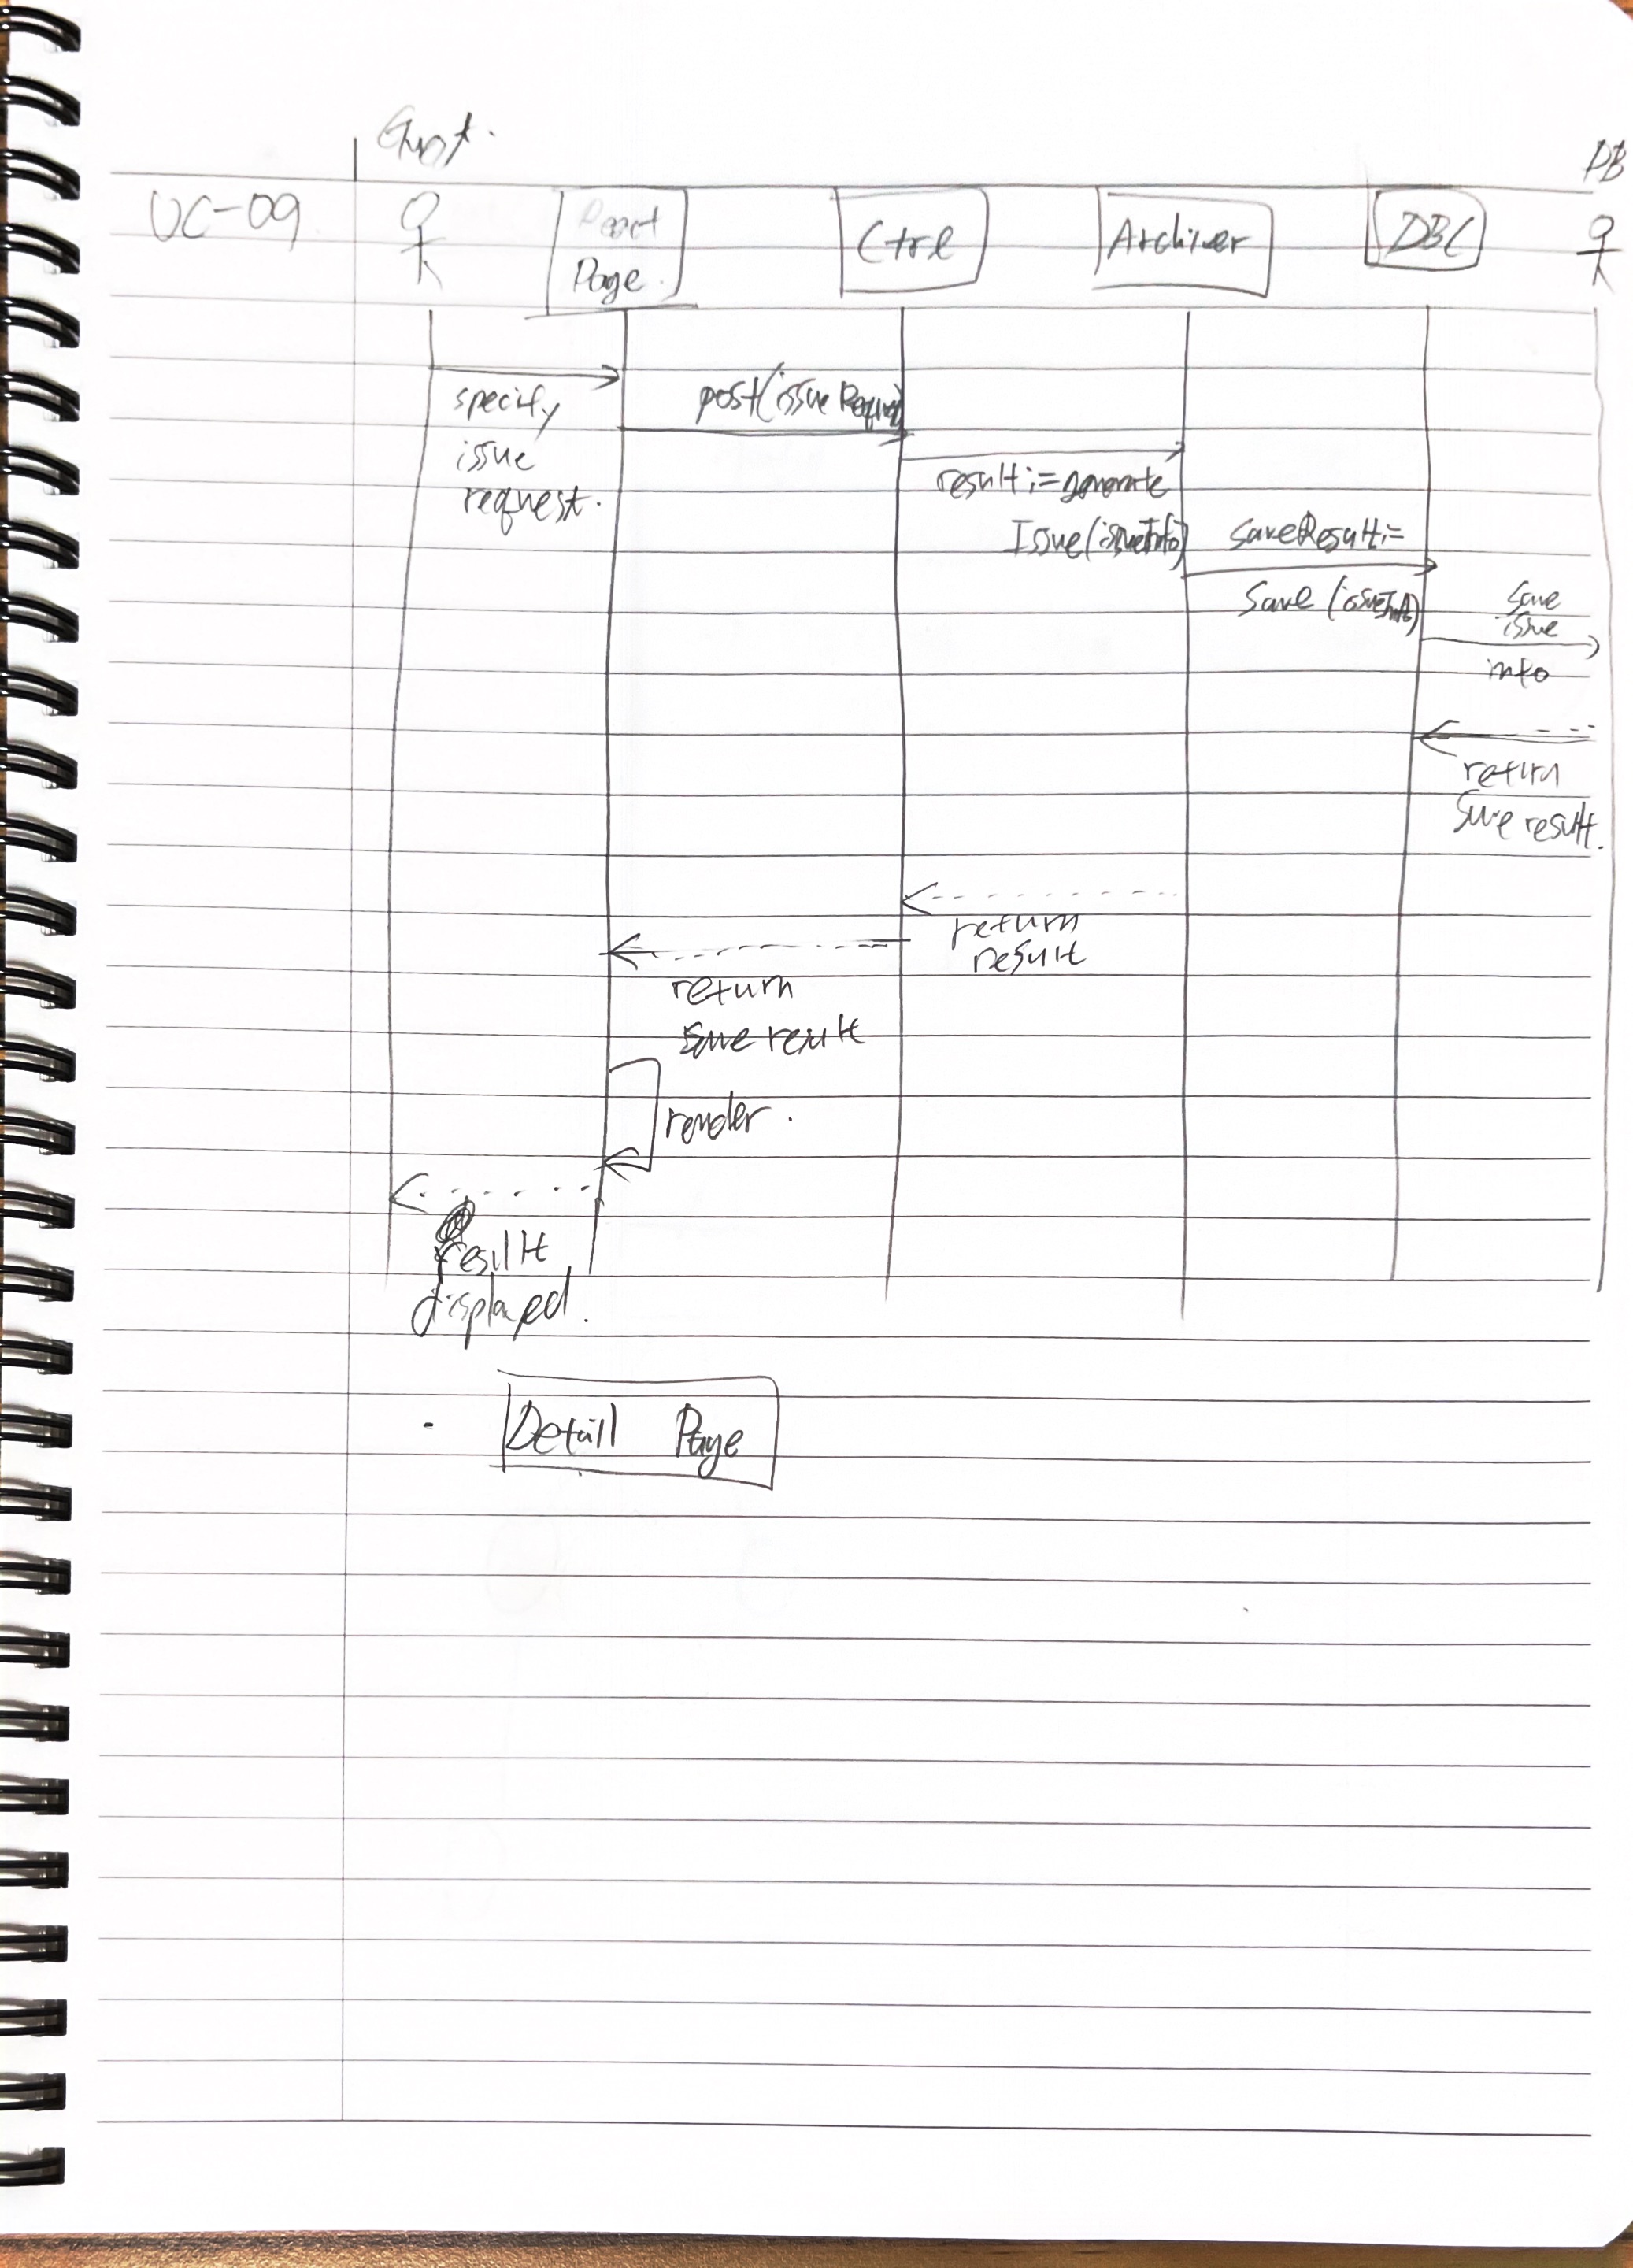 Guest.
DB
UC-09
Page.
Ctrl
Archiver
DBC
specify
issue
request.
post(issueRequest)
result:=generate
Issue(issueInfo)
saveResult:=
save(issueInfo)
save
issue
info
return
save result.
return
result
return
save result
render.
result
displayed.
Detail Page